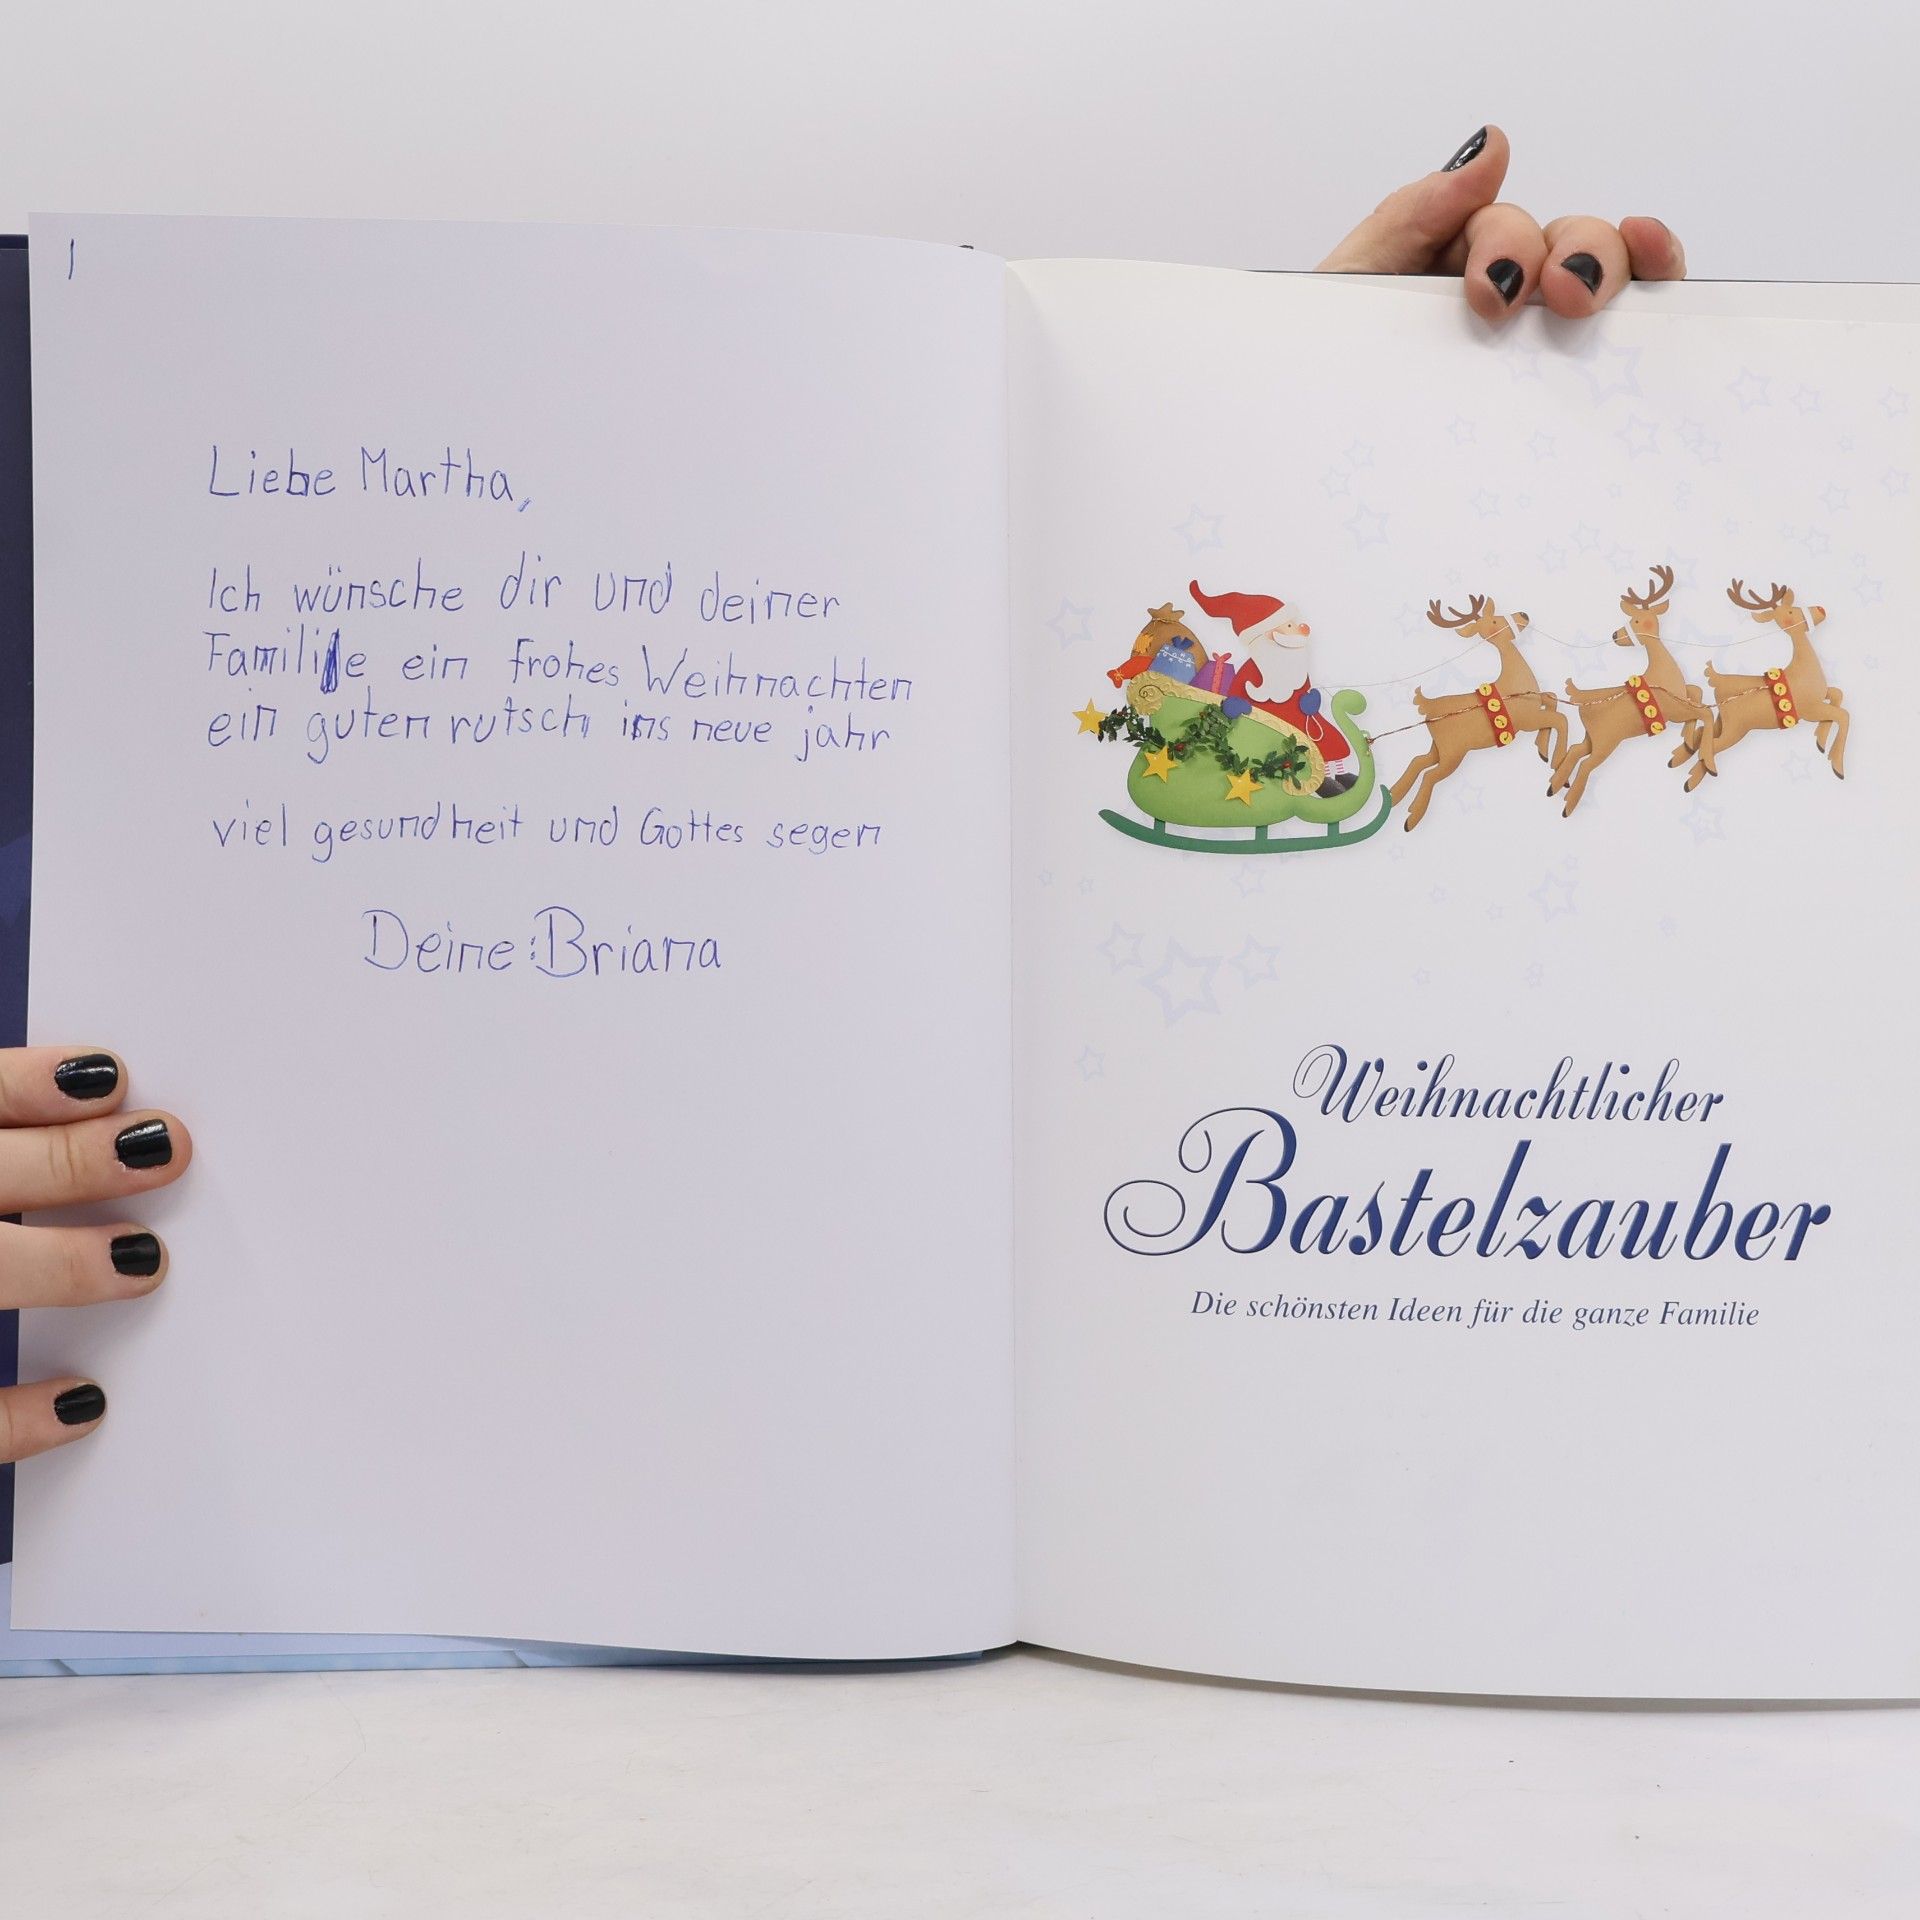 Liebe Martha,
Ich wünsche dir und deiner
Familie ein frohes Weihnachten
ein guten rutsch ins neue jahr
viel gesundheit und Gottes segen
Deine: Briana
Weihnachtlicher
Bastelzauber
Die schönsten Ideen für die ganze Familie